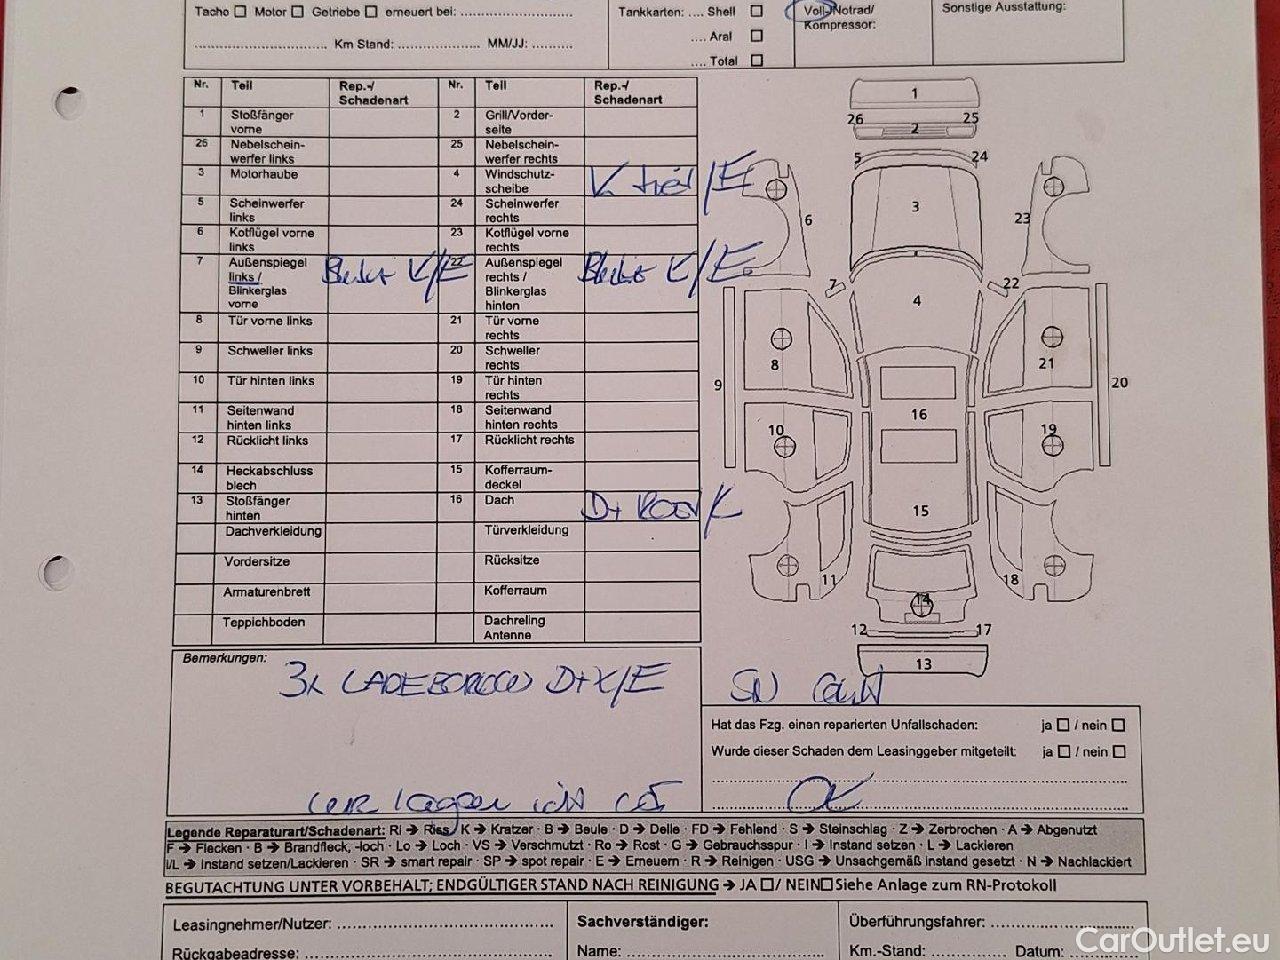 Tacho ☐ Motor ☐ Getriebe ☐ erneuert bei: ............................
................................ Km Stand: .................... MM/JJ: ..........
Tankkarten: .... Shell ☐
.... Aral ☐
.... Total ☐
Voll-/Notrad/
Kompressor:
Sonstige Ausstattung:
Nr. Teil Rep.-/ Schadenart Nr. Teil Rep.-/ Schadenart
1 Stoßfänger vorne 2 Grill/Vorder-seite
26 Nebelschein-werfer links 25 Nebelschein-werfer rechts
3 Motorhaube 4 Windschutz-scheibe /E
5 Scheinwerfer links 24 Scheinwerfer rechts
6 Kotflügel vorne links 23 Kotflügel vorne rechts
7 Außenspiegel links / Blinkerglas vorne K/E 22 Außenspiegel rechts / Blinkerglas hinten K/E
8 Tür vorne links 21 Tür vorne rechts
9 Schweller links 20 Schweller rechts
10 Tür hinten links 19 Tür hinten rechts
11 Seitenwand hinten links 18 Seitenwand hinten rechts
12 Rücklicht links 17 Rücklicht rechts
14 Heckabschluss blech 15 Kofferraum-deckel
13 Stoßfänger hinten 16 Dach D+
Dachverkleidung Türverkleidung
Vordersitze Rücksitze
Armaturenbrett Kofferraum
Teppichboden Dachreling Antenne
1
26 2 25
5 24
3
6 23
7 22
4
8 21
9 20
16
10 19
15
11 18
14
12 17
13
Bemerkungen:
3x D+K/E
Hat das Fzg. einen reparierten Unfallschaden: ja ☐ / nein ☐
Wurde dieser Schaden dem Leasinggeber mitgeteilt: ja ☐ / nein ☐
Legende Reparaturart/Schadenart: RI → Riss, K → Kratzer · B → Beule · D → Delle · FD → Fehlend · S → Steinschlag · Z → Zerbrochen · A → Abgenutzt
F → Flecken · B → Brandfleck, -loch · Lo → Loch · VS → Verschmutzt · Ro → Rost · G → Gebrauchsspur · I → Instand setzen · L → Lackieren
I/L → Instand setzen/Lackieren · SR → smart repair · SP → spot repair · E → Erneuern · R → Reinigen · USG → Unsachgemäß instand gesetzt · N → Nachlackiert
BEGUTACHTUNG UNTER VORBEHALT; ENDGÜLTIGER STAND NACH REINIGUNG → JA ☐ / NEIN ☐ Siehe Anlage zum RN-Protokoll
Leasingnehmer/Nutzer: ........................................
Rückgabeadresse: ........................................
Sachverständiger:
Name: ........................................
Überführungsfahrer: ........................................
Km.-Stand: .................... Datum: ..........
CarOutlet.eu